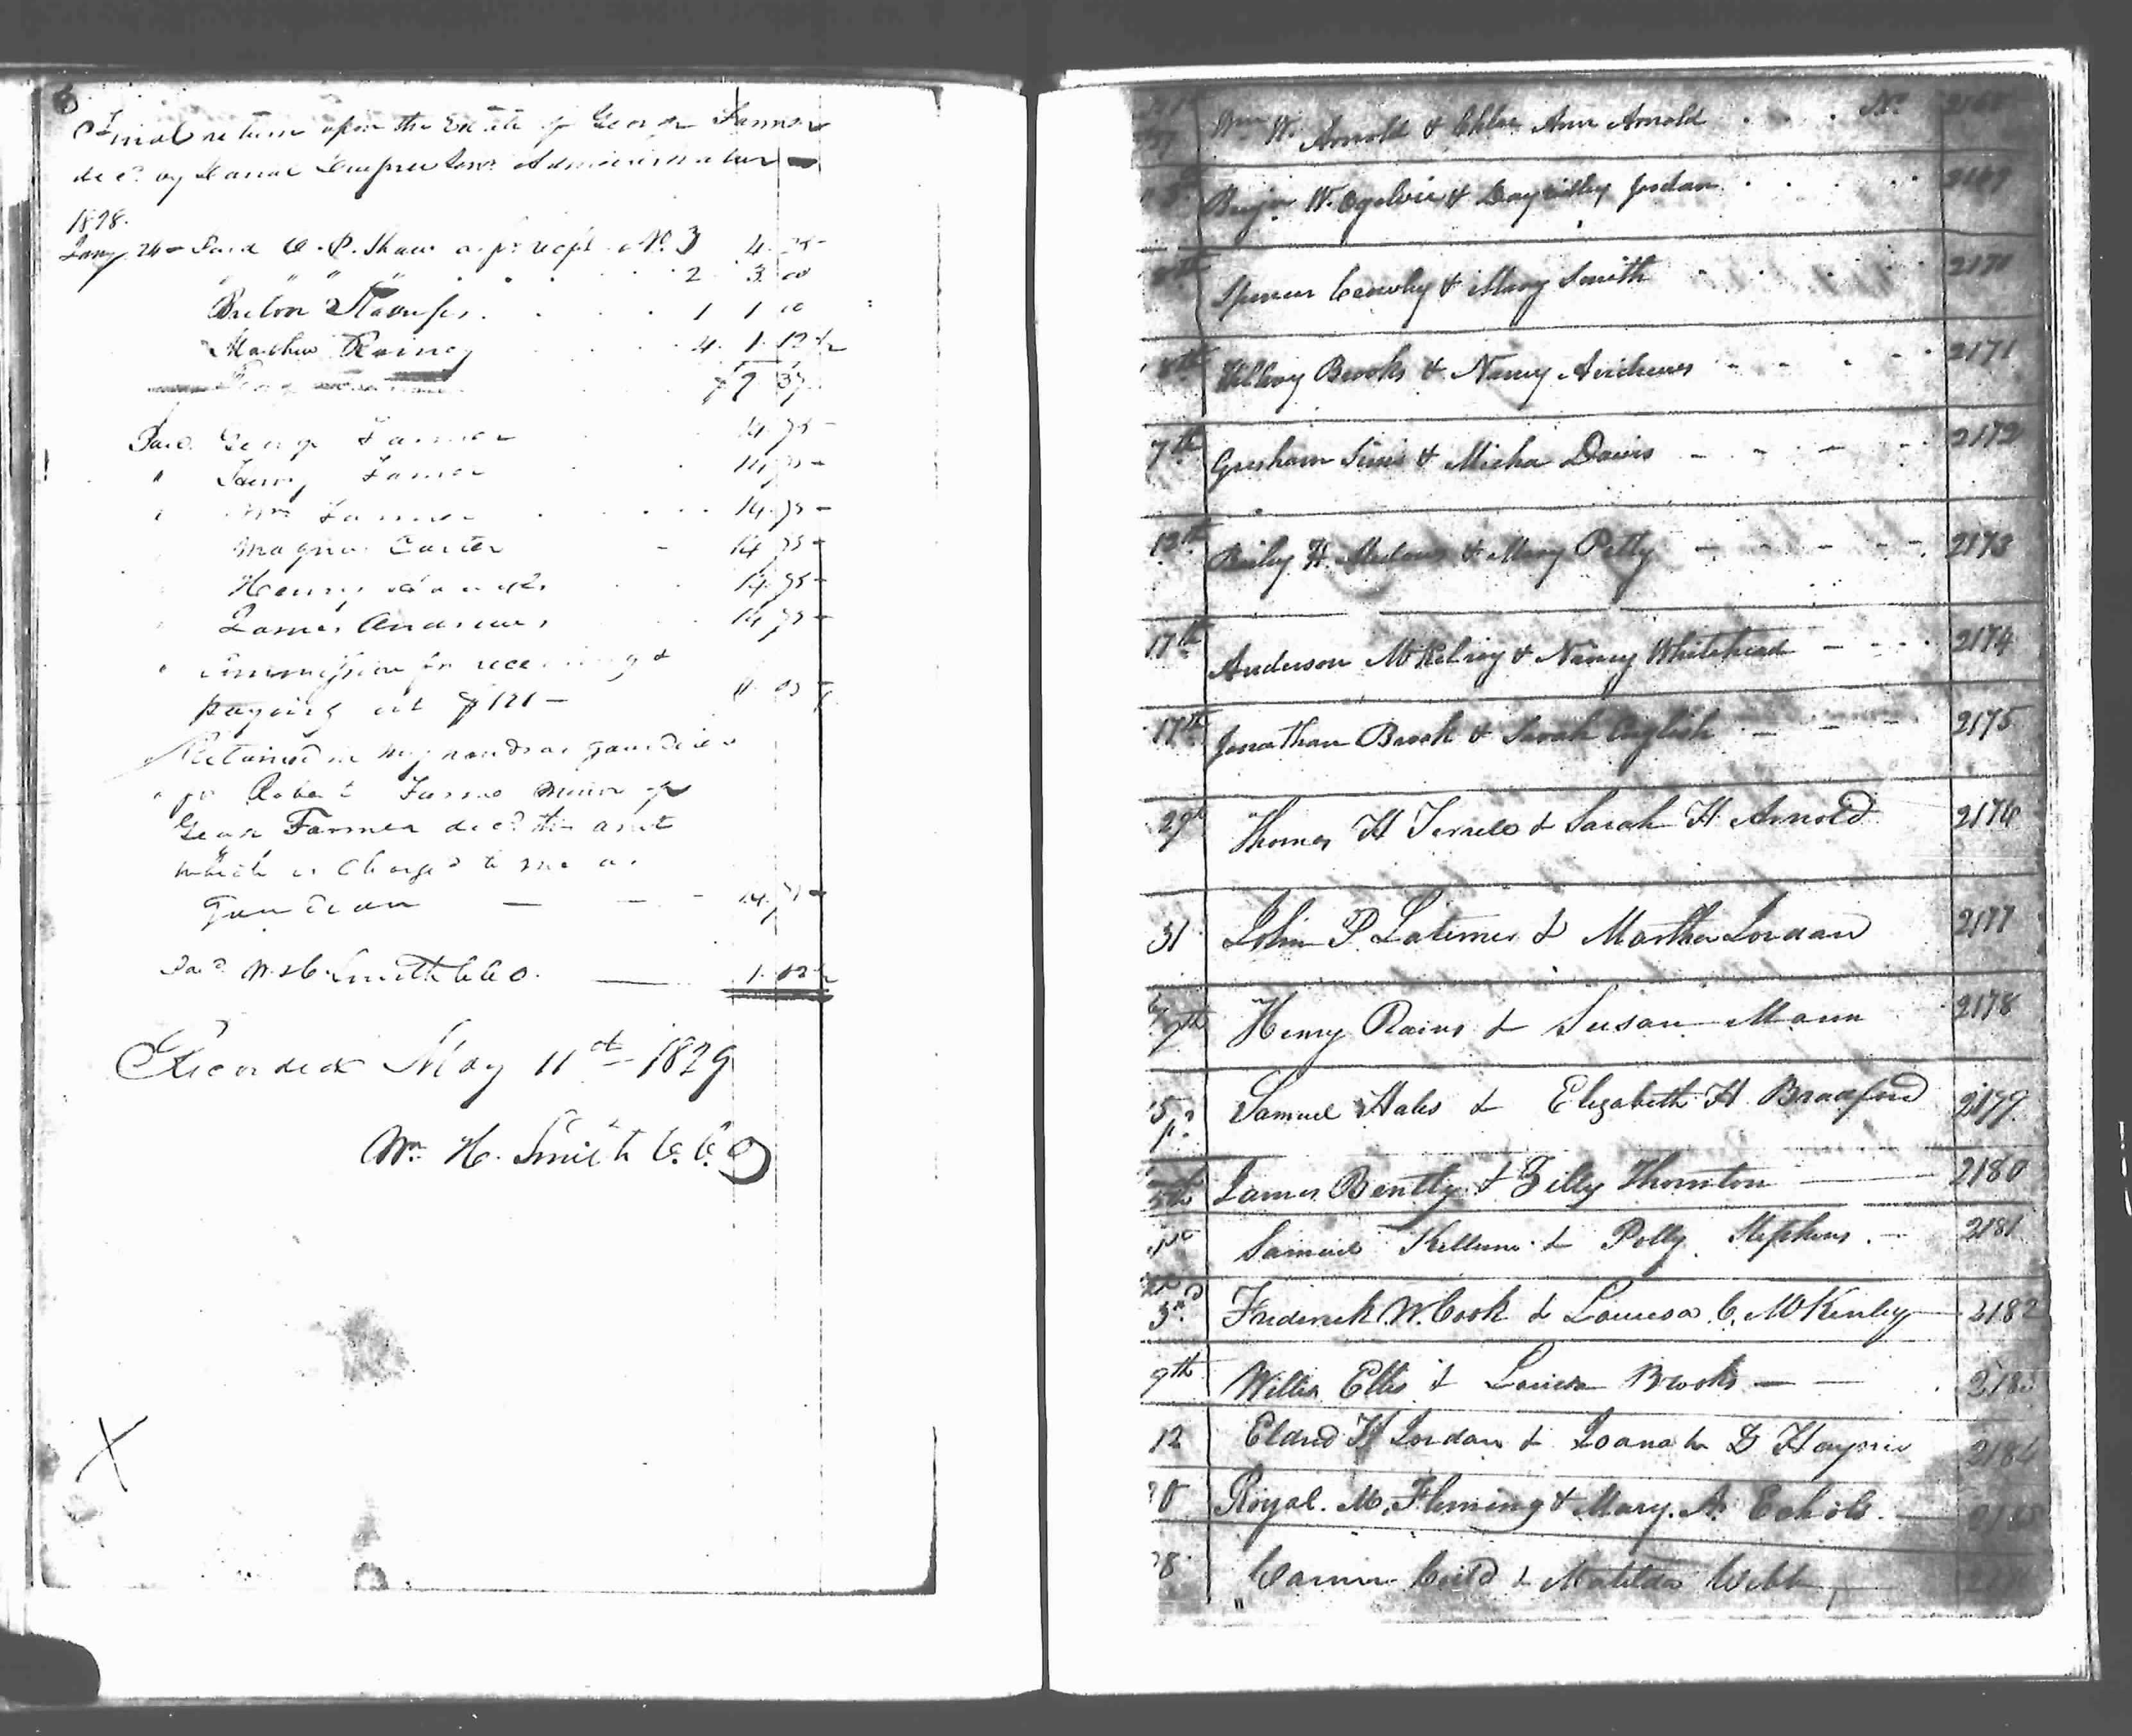 Final return upon the Estate of George Farmer
decd by Administrator
1828.
Jany 26 Paid C. P. Shaw as pr recpt No. 3 4. 25
" " " 2 3. 00
1 1 00
Mathew Rainey 4. 1. 12 1/2
$9 37
Paid George Farmer 14.75
" Farmer 14.75
" Wm Farmer 14.75
Magnus Carter 14.75
Henry 14.75
James Andrews 14.75
" Commission for receiving &
paying out $121 –
Retained in my hands as guardian
for Robert Farmer minor of
George Farmer decd this amt
which is Charged to me as
Guardian — — - 14.75
Paid W. H. Smith C C O. 1. 02 1/2
Recorded May 11th 1829
Wm H. Smith C. C. O
Wm W. Arnold & Chloe Ann Arnold No 2168
Benjn W. Ogelvie & Jordan 2169
8th Spencer Crowley & Mary Smith 2170
8th Brooks & Nancy Andrews 2171
7th Gresham Sims & Micha Davis 2172
13th Bailey H. & Mary Petty 2173
17th Anderson McKelroy & Nancy Whitehead 2174
17th Jonathan Brook & Sarah English 2175
29th Thomas H Terrele & Sarah H. Arnold 2176
31 John P. Latimer & Martha Jordan 2177
9th Henry Rains & Susan Mann 2178
5 Samuel Hales & Elizabeth H. Bradford 2179
5th James Bently & Tilly Thornton 2180
Samuel Kellum & Polly Stephens 2181
3rd Frederick W. Cook & Louisa C. McKenley 2182
9th Willis Ellis & Louisa Brooks 2183
12 Eldred H Jordan & D Haynie 2184
20 Royal. M. Fleming & Mary. A. Echols. 2185
28 & Matilda Webb